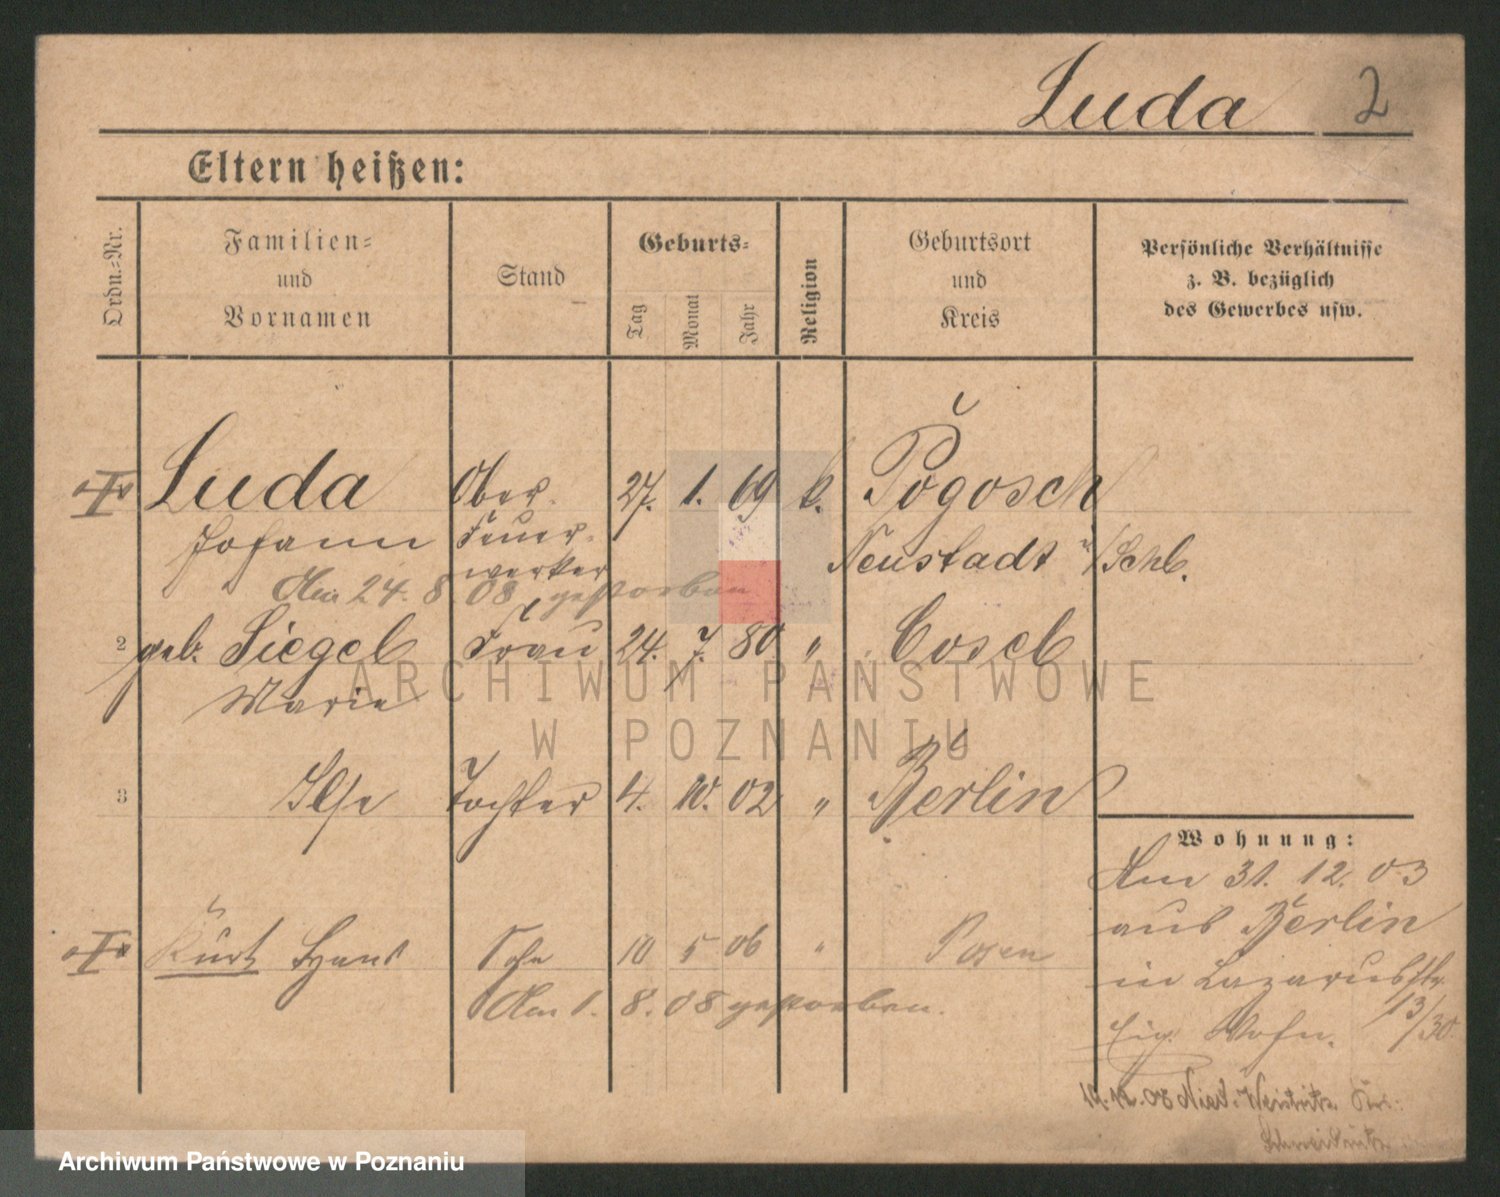 Luda 2
Eltern heißen:
Ordn.-Nr.
Familien-
und
Vornamen
Stand
Geburts-
Tag
Monat
Jahr
Religion
Geburtsort
und
Kreis
Persönliche Verhältnisse
z. B. bezüglich
des Gewerbes usw.
Luda Ober- 27. 1. 69 k. Pogosch
Johann Feuer- Neustadt /Schl.
werker
Am 24. 8. 08 gestorben
2 geb. Siegel Frau 24. 7. 80 " Cosel
Marie
3 Ilse Tochter 4. 10. 02 " Berlin
Kurt Hans Sohn 10 5 06 " Posen
Am 1. 8. 08 gestorben.
Wohnung:
Am 31. 12. 03
aus Berlin
in Lazarusstr
13/30
Eig. Wohn.
19. 12. 08 Nied. Weistritz Krs.
Schweidnitz
ARCHIWUM PAŃSTWOWE
W POZNANIU
Archiwum Państwowe w Poznaniu